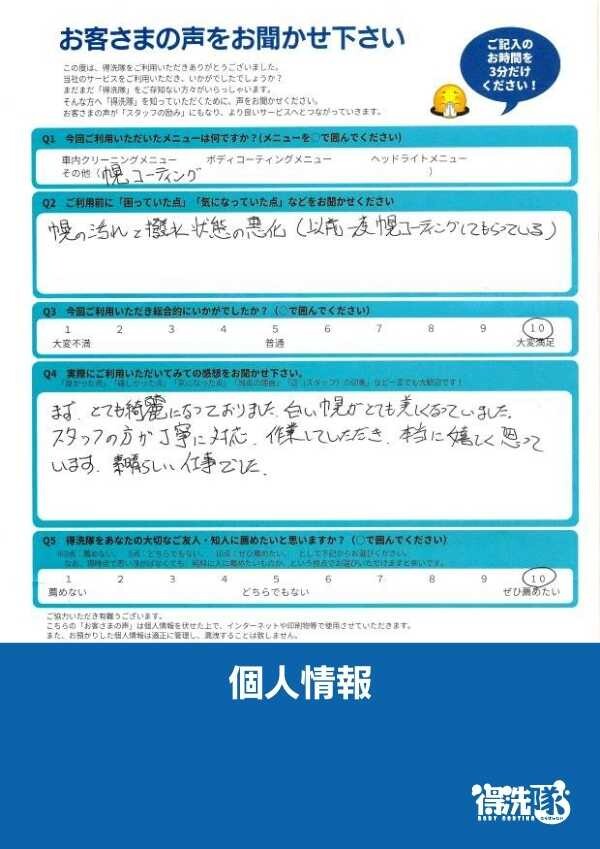 お客さまの声をお聞かせ下さい
ご記入の
お時間を
3分だけ
ください！
この度は、得洗隊をご利用いただきありがとうございました。
当社のサービスをご利用いただき、いかがでしたでしょうか？
まだまだ「得洗隊」をご存知ない方々がいらっしゃいます。
そんな方へ「得洗隊」を知っていただくために、声をお聞かせください。
お客さまの声が「スタッフの励み」にもなり、より良いサービスへとつながっていきます。
Q1 今回ご利用いただいたメニューは何ですか？(メニューを○で囲んでください)
車内クリーニングメニュー ボディコーティングメニュー ヘッドライトメニュー
その他（ 幌コーティング ）
Q2 ご利用前に「困っていた点」「気になっていた点」などをお聞かせください
幌の汚れと撥水状態の悪化（以前一度幌コーティングしてもらっている）
Q3 今回ご利用いただき総合的にいかがでしたか？（○で囲んでください）
1 2 3 4 5 6 7 8 9 10
大変不満 普通 大変満足
Q4 実際にご利用いただいてみての感想をお聞かせ下さい。
まず、とても綺麗になっておりました。白い幌がとても美しくなっていました。
スタッフの方が丁寧に対応、作業していただき、本当に嬉しく思って
います。素晴らしい仕事でした。
Q5 得洗隊をあなたの大切なご友人・知人に薦めたいと思いますか？（○で囲んでください）
※0点：薦めない、 5点：どちらでもない、 10点：ぜひ薦めたい、 として下記からお選びください。
1 2 3 4 5 6 7 8 9 10
薦めない どちらでもない ぜひ薦めたい
ご協力いただき有難うございます。
こちらの「お客さまの声」は個人情報を伏せた上で、インターネットや印刷物等で使用させていただきます。
また、お預かりした個人情報は適正に管理し、漏洩することは致しません。
個人情報
得洗隊
BODY COATING